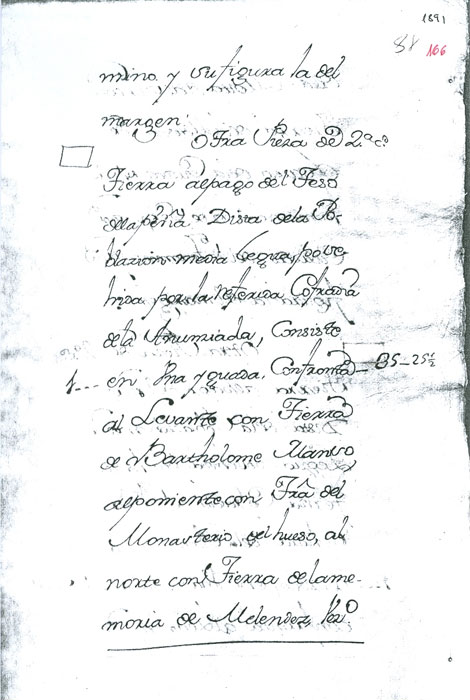 1891
88 166
mino. y su figura la del
margen.
Otra Pieza de 2.ª cᵒ
Tierra al pago del Teso
de la peña Dista de la Po-
blazion media legua, po ve-
hida por la referida Cofradia
de la Anunziada, Consiste
1... en Una yguada. Confronta 35-25½
al Levante con Tierra
de Bartholome Manso,
al poniente con Trâ del
Monasterio del hueso, al
norte con Tierra de la me-
moria de Melendez, Vezº